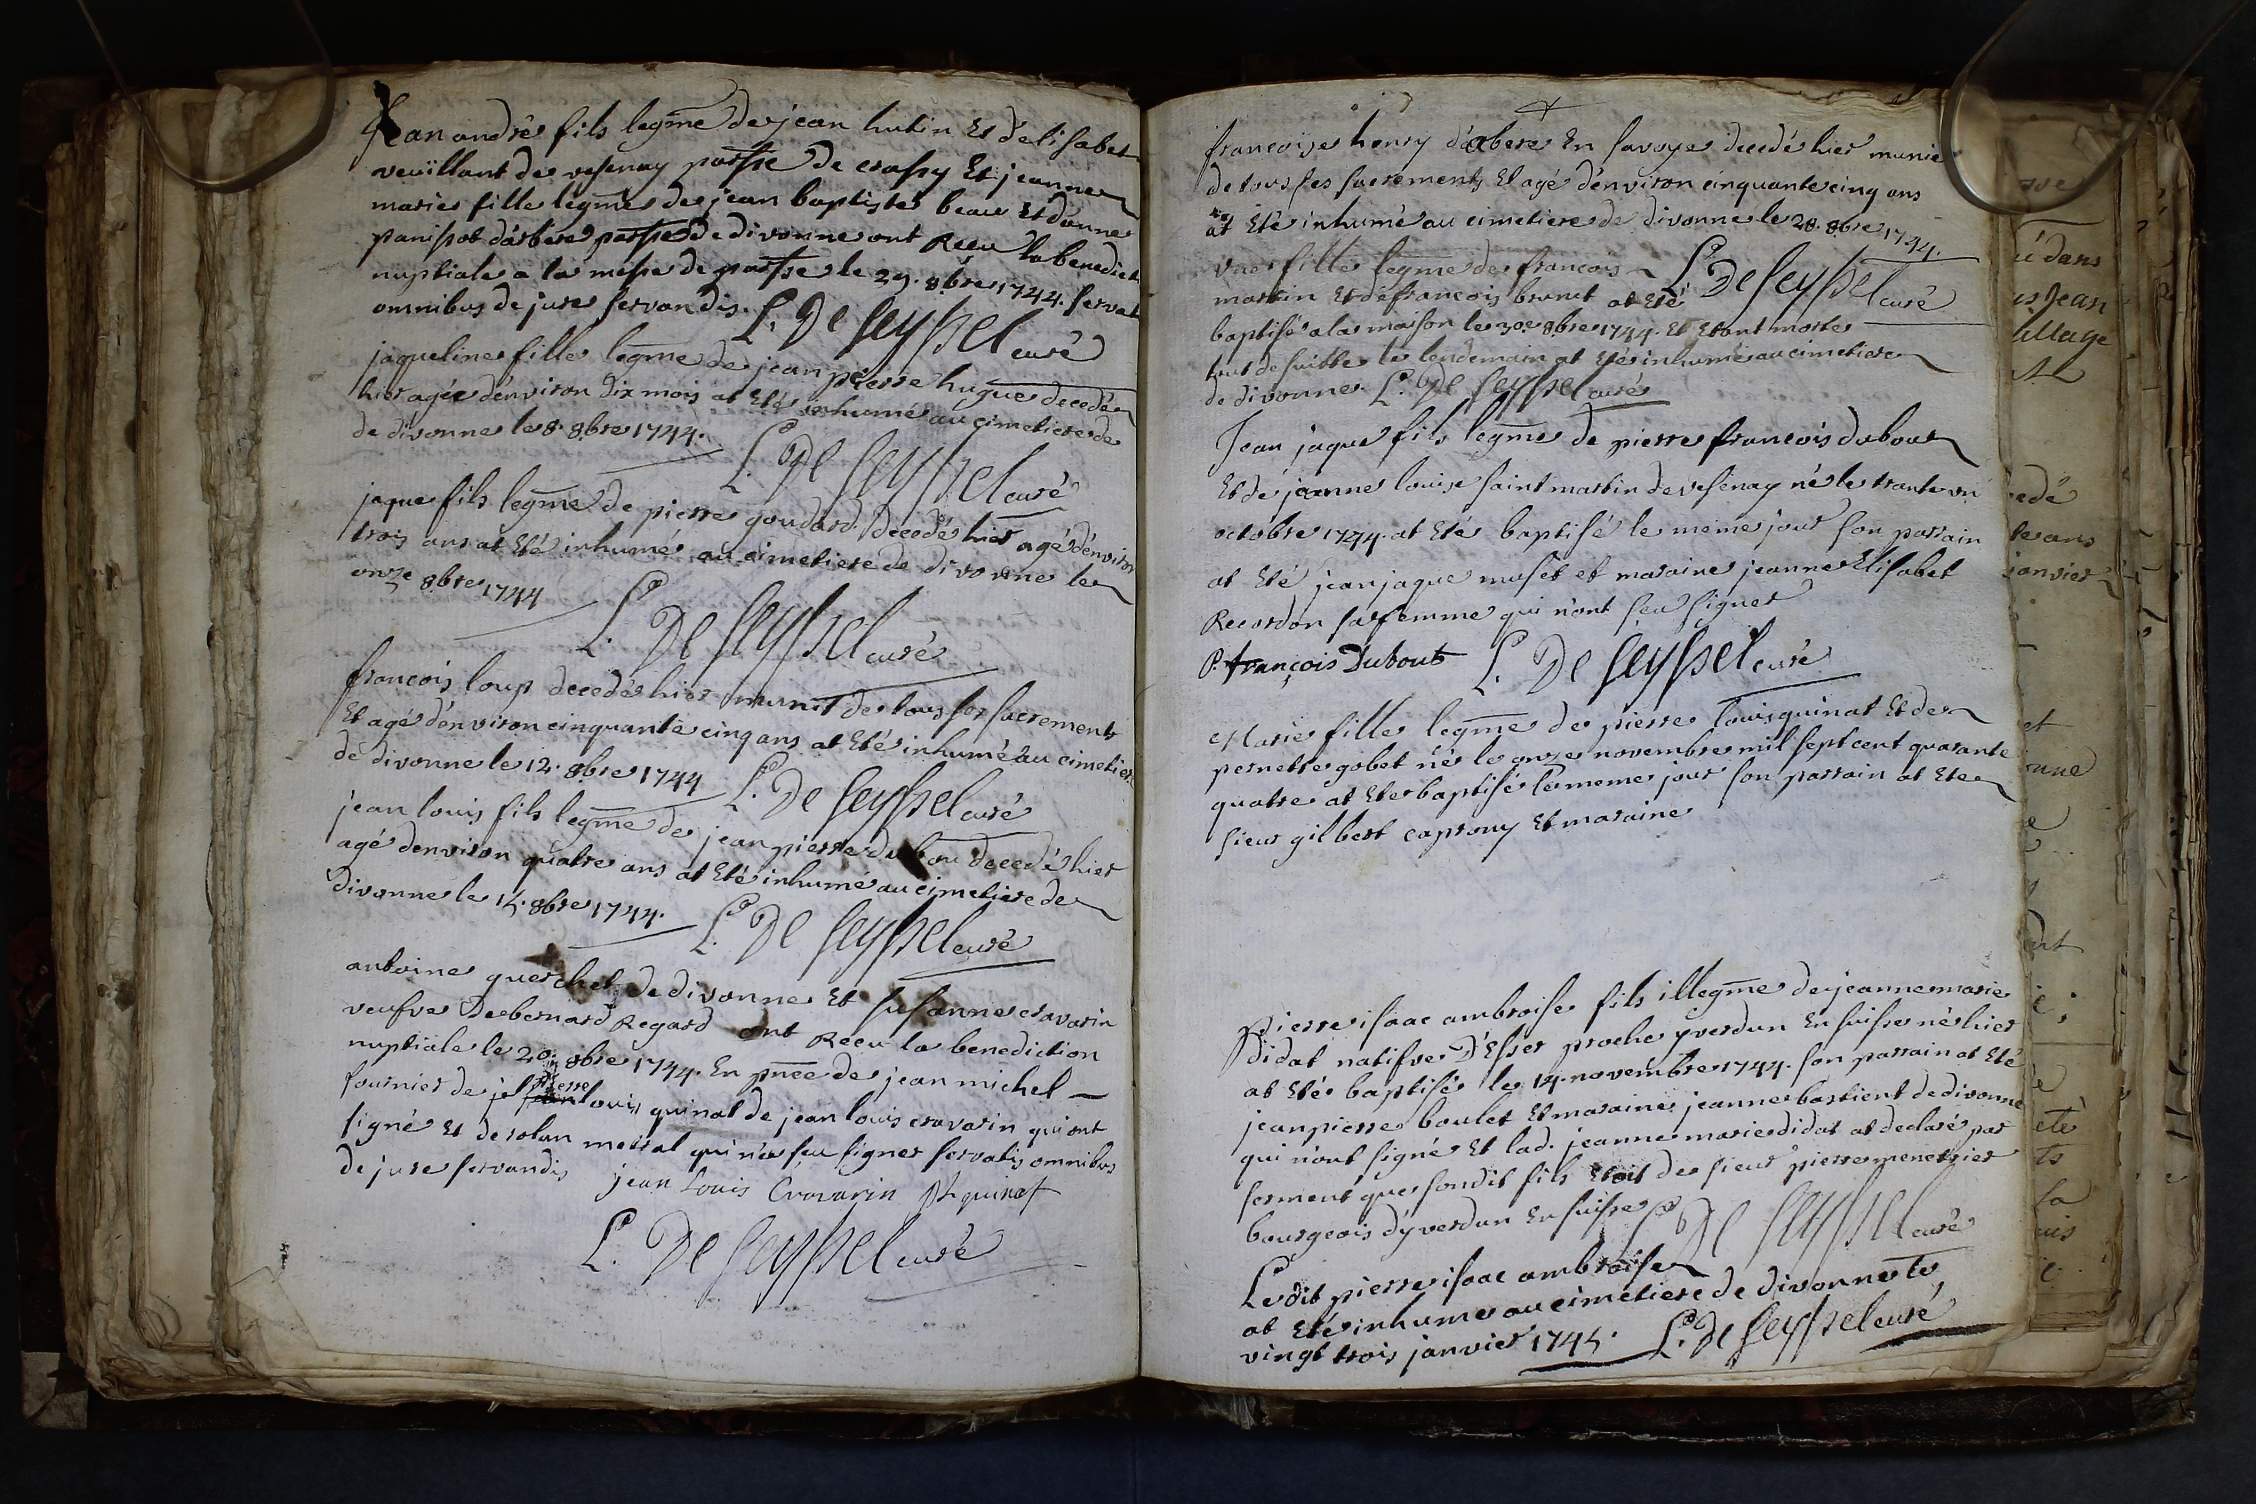 Jean andré fils legme de jean hutin Et d'elisabet
veuillant de vesenay parsse de crassy Et jeanne
marie fille legme de jean baptiste beau Et d'anne
panissot d'arbere parsse de divonne ont Reçu la benedict
nuptiale a la messe de parsse le 29. 8bre 1744. servat
omnibus de jure servandis. L. De Seyssel curé
jaqueline fille legme de jean pierre hugue decedée
hier agée d'environ dix mois at Eté inhumé au cimetiere de
de divonne le 8. 8bre 1744.
L. De Seyssel curé
jaque fils legme de pierre goudard. Decedé hier agé d'environ
trois ans at Eté inhumé au cimetiere de divonne le
onze 8bre 1744
L. De Seyssel curé
françois loup decedé hier munit de tous ses sacrements
Et agé d'environ cinquante cinq ans at Eté inhumé au cimetiere
de divonne le 12. 8bre 1744 L. De Seyssel curé
jean louis fils legme de jean pierre dubou decedé hier
agé d'environ quatre ans at Eté inhumé au cimetiere de
divonne le 14. 8bre 1744.
L. De Seyssel curé
antoine querchet de divonne Et susanne cravarin
veufve De bernard Regard ont Reçu la benediction
nuptiale le 20. 8bre 1744. En pnce de jean michel
fournier de pierre louis quinat de jean louis cravarin qui ont
signé Et de rolan metral qui n'a sçu signer servatis omnibus
de jure servandis jean Louis Cravarin PL quinat
L. De Seyssel curé
françoise henry d'abere En savoye decedé hier munie
de tous ses sacrements Et agé d'environ cinquante cinq ans
at Eté inhumé au cimetiere de divonne le 28. 8bre 1744.
Une fille legme de françois L. De Seyssel curé
martin Et de françois brunet at Eté
baptisé a la maison le 30e 8bre 1744. Et Etant morte
tout de suitte le lendemain at Eté inhumé au cimetiere
de divonne. L. De Seyssel curé
Jean jaque fils legme de pierre françois dubout
Et de jeanne louise saint martin de vesenay né le trante un
octobre 1744. at Eté baptisé le meme jour son parrain
at Eté jean jaque muset et maraine jeanne Elisabet
Recordon sa femme qui n'ont sçu signer
P. françois Dubout L. De Seyssel curé
Marie fille legme de pierre louis quinat Et de
pernette gobet né le onze novembre mil sept cent quarante
quatre at Eté baptisé le meme jour son parrain at Eté
sieur gilbert caprony Et maraine
Pierre isaac ambroise fils illegme de jeanne marie
Didat natifve D'Esser proche yverdun En suisse né hier
at Eté baptisé le 14. novembre 1744. son parrain at Eté
jean pierre boulet Et maraine jeanne bastient de divonne
qui n'ont signé Et lad. jeanne marie didat at declaré par
serment que sondit fils Etoit de sieur pierre menetrier
bourgeois d'yverdun En suisse L. De Seyssel curé
Ledit pierre isaac ambroise
at Eté inhumé au cimetiere de divonne le
vingt trois janvier 1745. L. De Seyssel curé